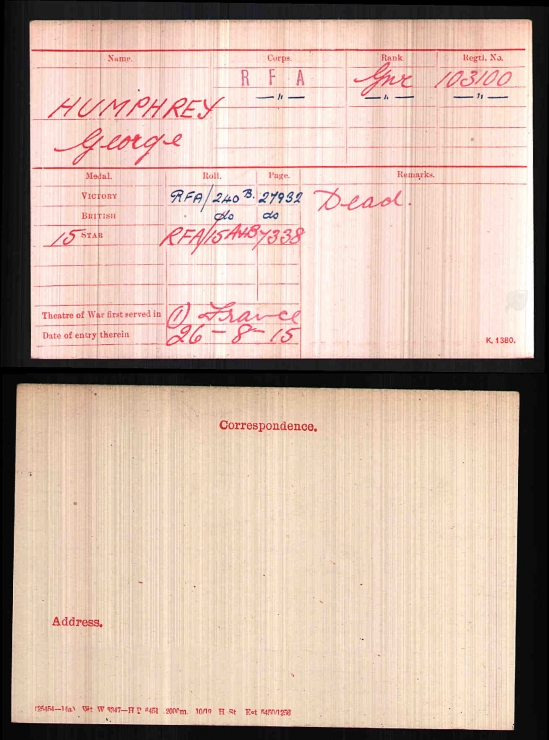 Name. Corps. Rank Regtl. No.
R F A Gnr 103100
— " — — " — — " —
HUMPHREY
George
Medal. Roll. Page. Remarks.
VICTORY RFA/240 B. 27932 Dead.
BRITISH do do
15 STAR RFA/15A&B 7338
Theatre of War first served in (1) France
Date of entry therein 26-8-15
K. 1380.
Correspondence.
Address.